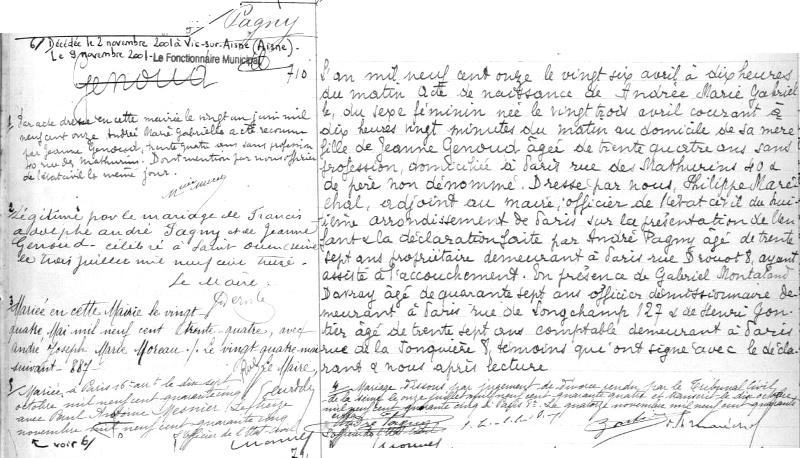 Pagny
6/ Décédée le 2 novembre 2001 à Vic-sur-Aisne (Aisne).
Le 9 novembre 2001 - Le Fonctionnaire Municipal
Genoud
710
1 Par acte dressé en cette mairie le vingt un juin mil
neuf cent onze Andrée Marie Gabrielle a été reconnue
par Jeanne Genoud, trente quatre ans sans profession
40 rue des Mathurins. Dont mention par nous officier
de l'état civil le même jour.
2 Légitimée par le mariage de Francis
Adolphe André Pagny et de Jeanne
Genoud célébré à Paris
le trois juillet mil neuf cent treize.
Le Maire,
3 Mariée en cette Mairie le vingt
quatre Mai mil neuf cent trente-quatre, avec
André Joseph Marie Moreau ./. Le vingt quatre mai
suivant - 887 -
Le Maire,
5 Mariée à Paris 16e arrt le dix sept
octobre mil neuf cent quarante cinq
avec Paul Antoine Mesnier. Le treize
novembre mil neuf cent quarante cinq
l'officier de l'Etat Civil
voir 6/
L'an mil neuf cent onze le vingt six avril à dix heures
du matin Acte de naissance de Andrée Marie Gabriel
le, du sexe féminin née le vingt trois avril courant à
dix heures vingt minutes du matin au domicile de sa mère
fille de Jeanne Genoud âgée de trente quatre ans sans
profession, domiciliée à Paris rue des Mathurins 40 &
de père non dénommé. Dressé par nous, Philippe Maré
chal, adjoint au maire, officier de l'état civil du hui
tième arrondissement de Paris sur la présentation de l'en
fant & la déclaration faite par André Pagny âgé de trente
sept ans propriétaire demeurant à Paris rue Drouot 8, ayant
assisté à l'accouchement. En présence de Gabriel Montaland
Davray âgé de quarante sept ans officier démissionnaire de
meurant à Paris rue de Longchamp 127 & de Henri Gon
tier âgé de trente sept ans comptable demeurant à Paris
rue de la Jonquière 8, témoins qui ont signé avec le décla
rant & nous après lecture
4 Mariage dissous par jugement de divorce rendu par le Tribunal Civil
de la Seine le onze juillet mil neuf cent quarante quatre et transcrit le dix octobre
mil neuf cent quarante cinq à Paris 8e. Le quatorze novembre mil neuf cent quarante